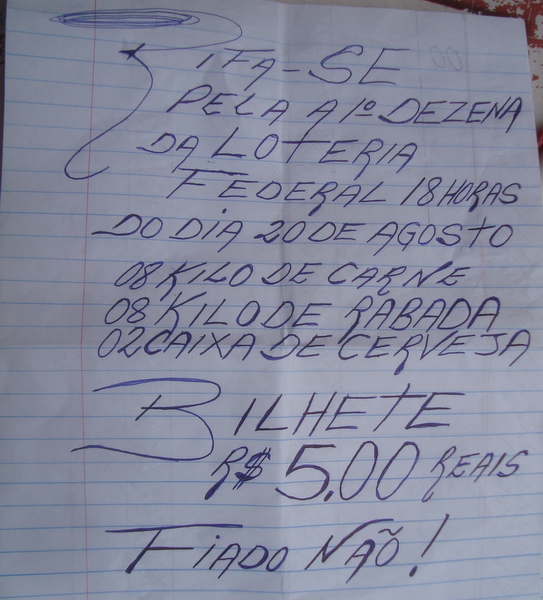 RIFA-SE
PELA A 1º DEZENA
DA LOTERIA
FEDERAL 18 HORAS
DO DIA 20 DE AGOSTO
08 KILO DE CARNE
08 KILO DE RABADA
02 CAIXA DE CERVEJA
BILHETE
R$ 5,00 REAIS
FIADO NÃO!